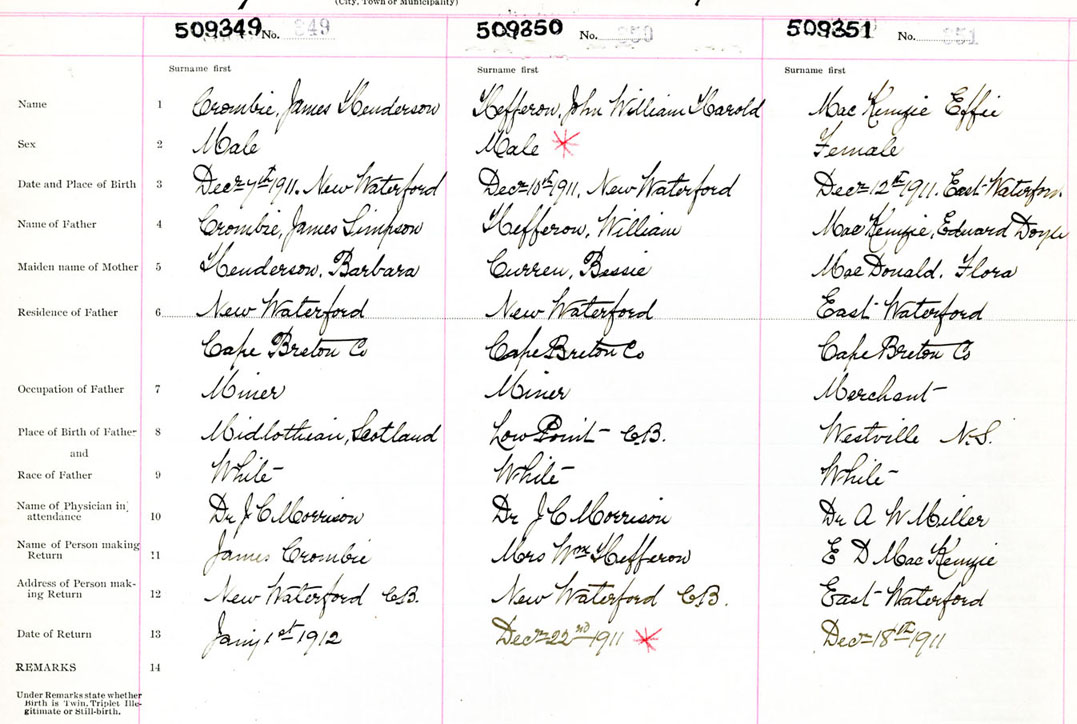 (City, Town or Municipality)
509349 No. 349 509350 No. 350 509351 No. 351
Surname first Surname first Surname first
Name 1 Crombie, James Henderson Hefferon, John William Harold Mac Kenzie Effie
Sex 2 Male Male Female
Date and Place of Birth 3 Decr 7th 1911. New Waterford Decr 10th 1911, New Waterford Decr 12th 1911. East Waterford
Name of Father 4 Crombie, James Simpson Hefferon, William Mac Kenzie, Edward Doyle
Maiden name of Mother 5 Henderson, Barbara Curren, Bessie Mac Donald, Flora
Residence of Father 6 New Waterford New Waterford East Waterford
Cape Breton Co Cape Breton Co Cape Breton Co
Occupation of Father 7 Miner Miner Merchant
Place of Birth of Father 8 Midlothian, Scotland Low Point C.B. Westville N.S.
and
Race of Father 9 White White White
Name of Physician in attendance 10 Dr J C Morrison Dr J C Morrison Dr A W Miller
Name of Person making Return 11 James Crombie Mrs Wm Hefferon E D Mac Kenzie
Address of Person mak-
ing Return 12 New Waterford C.B. New Waterford C.B. East Waterford
Date of Return 13 Jany 1st 1912 Decr 22nd 1911 Decr 18th 1911
REMARKS 14
Under Remarks state whether
Birth is Twin, Triplet Ille-
gitimate or Still-birth.